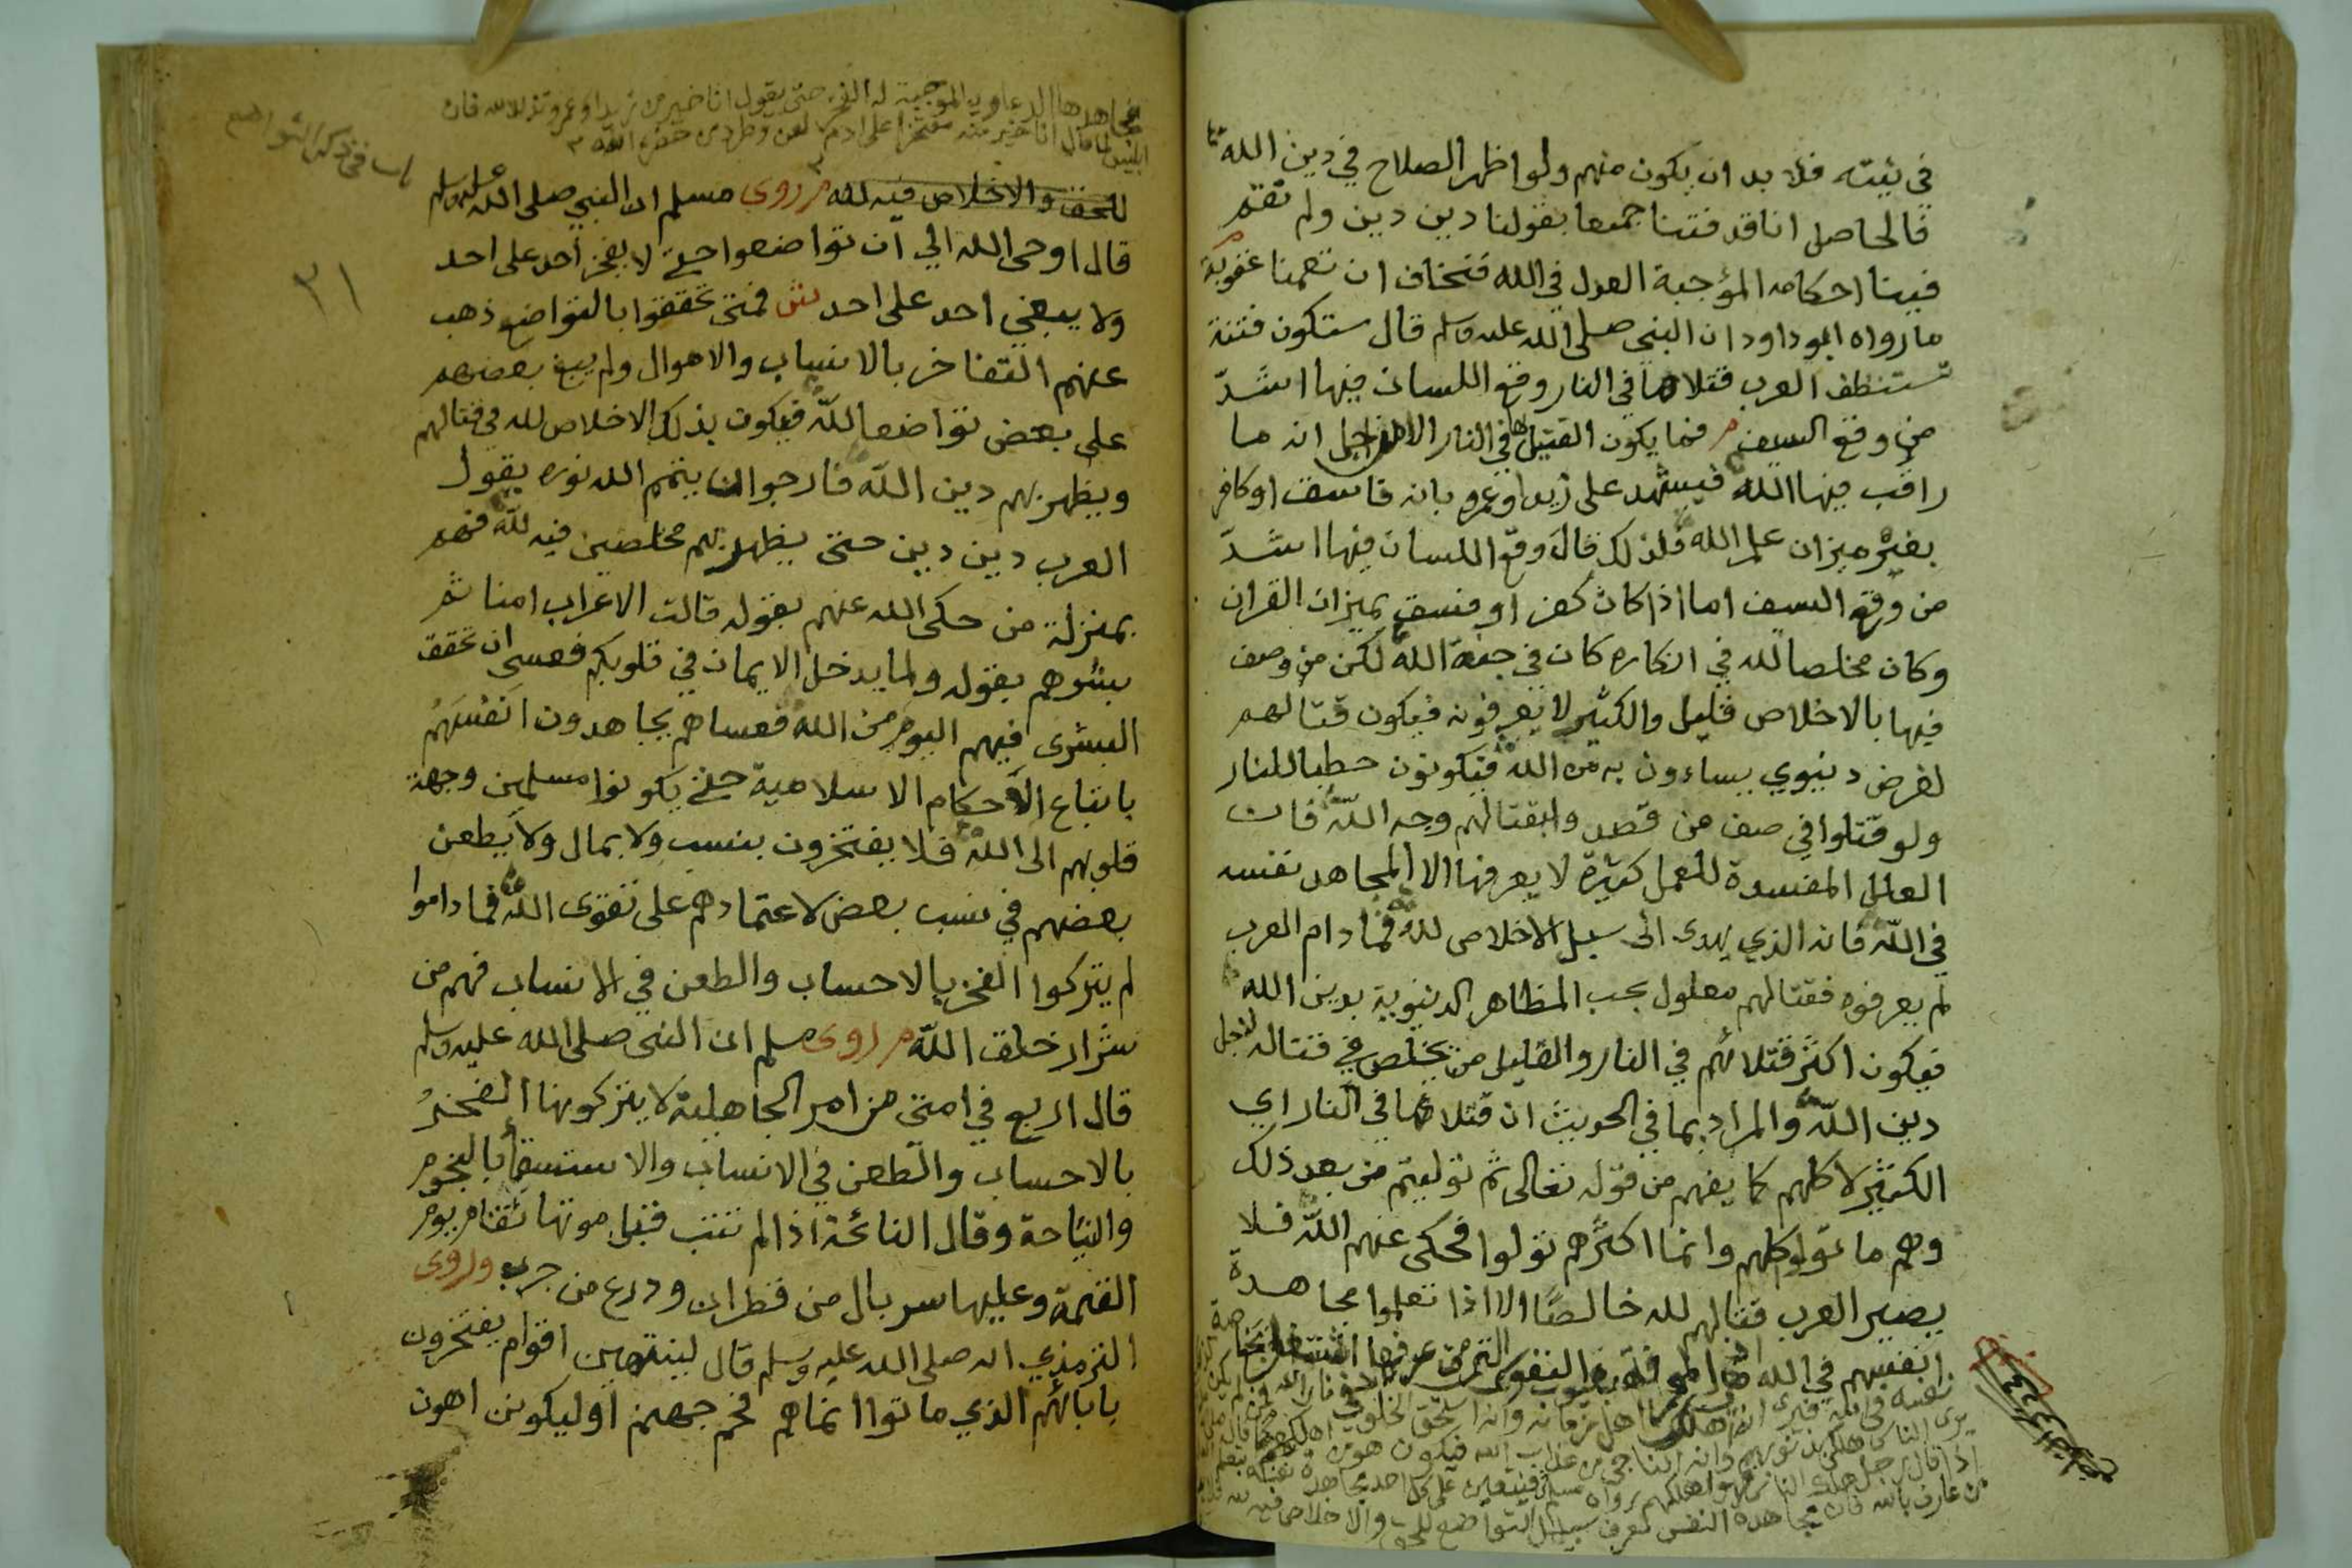 في نيته فلا بد ان يكون منهم ولو اظهر الصلاح في دين الله
فالحاصل انا قد فتنا جمعا بقولنا دين دين ولم نقم
فينا احكامه المؤجبة العدل في الله فنخاف ان تعمنا عقوبة
ما رواه ابو داود ان النبي صلى الله عليه وسلم قال ستكون فتنة
تستنظف العرب قتلاها في النار وقع اللسان فيها اشدّ
من وقع السيف فما يكون القتيل في النار الا من اجل انه ما
راقب فيها الله فيشهد على زيد او عمرو بانه فاسق او كافر
بغير ميزان علم الله فلذلك قال وقع اللسان فيها اشدّ
من وقع السيف اما اذا كان كفر او فسق بميزان القران
وكان مخلصا لله في انكاره كان في جنة الله لكن من وصف
فيها بالاخلاص قليل والكثير لا يعرفونه فيكون قتالهم
لغرض دنيوي يساءون به من الله فيكونون حطبا للنار
ولو قتلوا في صف من قصد بقتالهم وجه الله فان
العلل المفسدة للعمل كثيرة لا يعرفها الا المجاهد نفسه
في الله فانه الذي يهدى الى سبيل الاخلاص لله فما دام العرب
لم يعرفوه فقتالهم معلول بحب المظاهر الدنيوية بدين الله
فيكون اكثر قتلائهم في النار والقليل من يخلص في قتاله لاجل
دين الله والمراد بما في الحديث ان قتلاها في النار اي
الكثير لا كلهم كما يفهم من قوله تعالى ثم توليتم من بعد ذلك
وهم ما تولوا كلهم وانما اكثرهم تولوا فحكى عنهم الله فلا
يصير العرب قتالهم لله خالصًا الا اذا تعلموا مجاهدة
انفسهم في الله
اذا قال رجل هلك الناس فهو اهلكهم رواه مسلم فيتعين على كل احد مجاهدة نفسه
من عارف بالله فان مجاهدة النفس تعرف سبيل التواضع للحق والاخلاص فيه لله
مجاهدها الدعاوي الموجبة له الفخر حتى يقول انا خير من زيد او عمرو
ابليس لما قال انا خير منه مفتخرا على ادم لعن وطرد من حضرة الله
للحق والاخلاص فيه لله روى مسلم ان النبي صلى الله عليه وسلم
قال اوحى الله الي ان تواضعوا حتى لا يفخر احد على احد
٣١
ولا يبغي احد على احد ش فمتى تحققوا بالتواضع ذهب
عنهم التفاخر بالانساب والاموال ولم يبغ بعضهم
على بعض تواضعا لله فيكون بذلك الاخلاص لله في قتالهم
ويظهر بهم دين الله فارجوا ان يتمم الله نوره بقول
العرب دين دين حتى يظهر بهم مخلصين فيه لله فهم
بمنزلة من حكى الله عنهم بقوله قالت الاعراب امنا ثم
بشرهم بقوله ولما يدخل الايمان في قلوبكم فعسى ان تحقق
البشرى فيهم اليوم من الله فعساهم يجاهدون انفسهم
باتباع الاحكام الاسلامية حتى يكونوا مسلمين وجهة
قلوبهم الى الله فلا يفتخرون بنسب ولا بمال ولا يطعن
بعضهم في نسب بعض لاعتمادهم على تقوى الله فما داموا
لم يتركوا الفخر بالاحساب والطعن في الانساب فهم من
شرار خلق الله روى مسلم ان النبي صلى الله عليه وسلم
قال اربع في امتى من امر الجاهلية لا يتركونها الفخر
بالاحساب والطعن في الانساب والاستسقا بالنجوم
والنياحة وقال النائحة اذا لم تتب قبل موتها تقام يوم
القيمة وعليها سربال من قطران ودرع من جرب وروى
الترمذي انه صلى الله عليه وسلم قال لينتهين اقوام يفتخرون
بابائهم الذي ماتوا انما هم فحم جهنم او ليكونن اهون